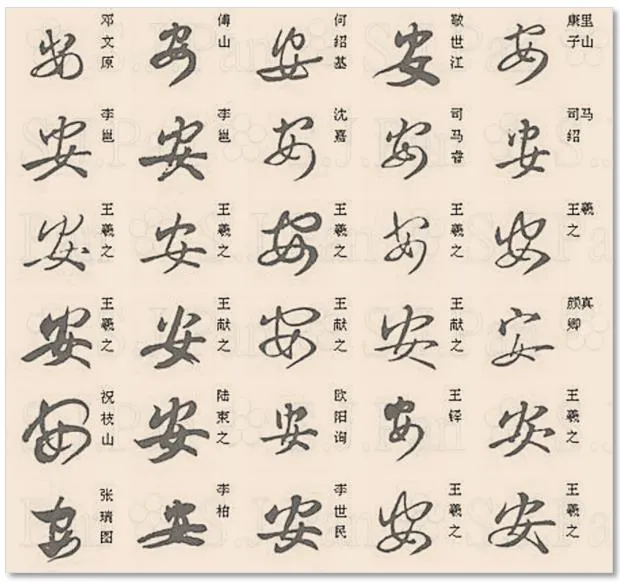 安 邓文原 安 傅山 安 何绍基 安 敬世江 安 康里子山
安 李邕 安 李邕 安 沈嘉 安 司马睿 安 司马绍
安 王羲之 安 王羲之 安 王羲之 安 王羲之 安 王羲之
安 王羲之 安 王献之 安 王献之 安 王献之 安 颜真卿
安 祝枝山 安 陆柬之 安 欧阳询 安 王铎 安 王羲之
安 张瑞图 安 李柏 安 李世民 安 王羲之 安 王羲之